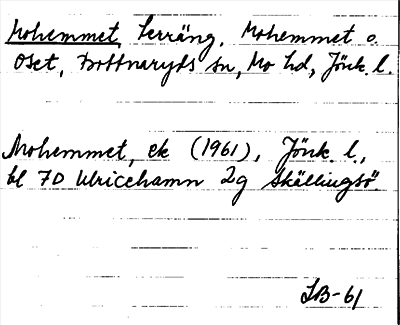 Mohemmet, terräng, Mohemmet o.
Oset, Bottnaryds sn, Mo hd, Jönk. l.
Mohemmet, ek (1961), Jönk. l.,
bl 7D Ulricehamn 2g Skällingsö.
LB-61